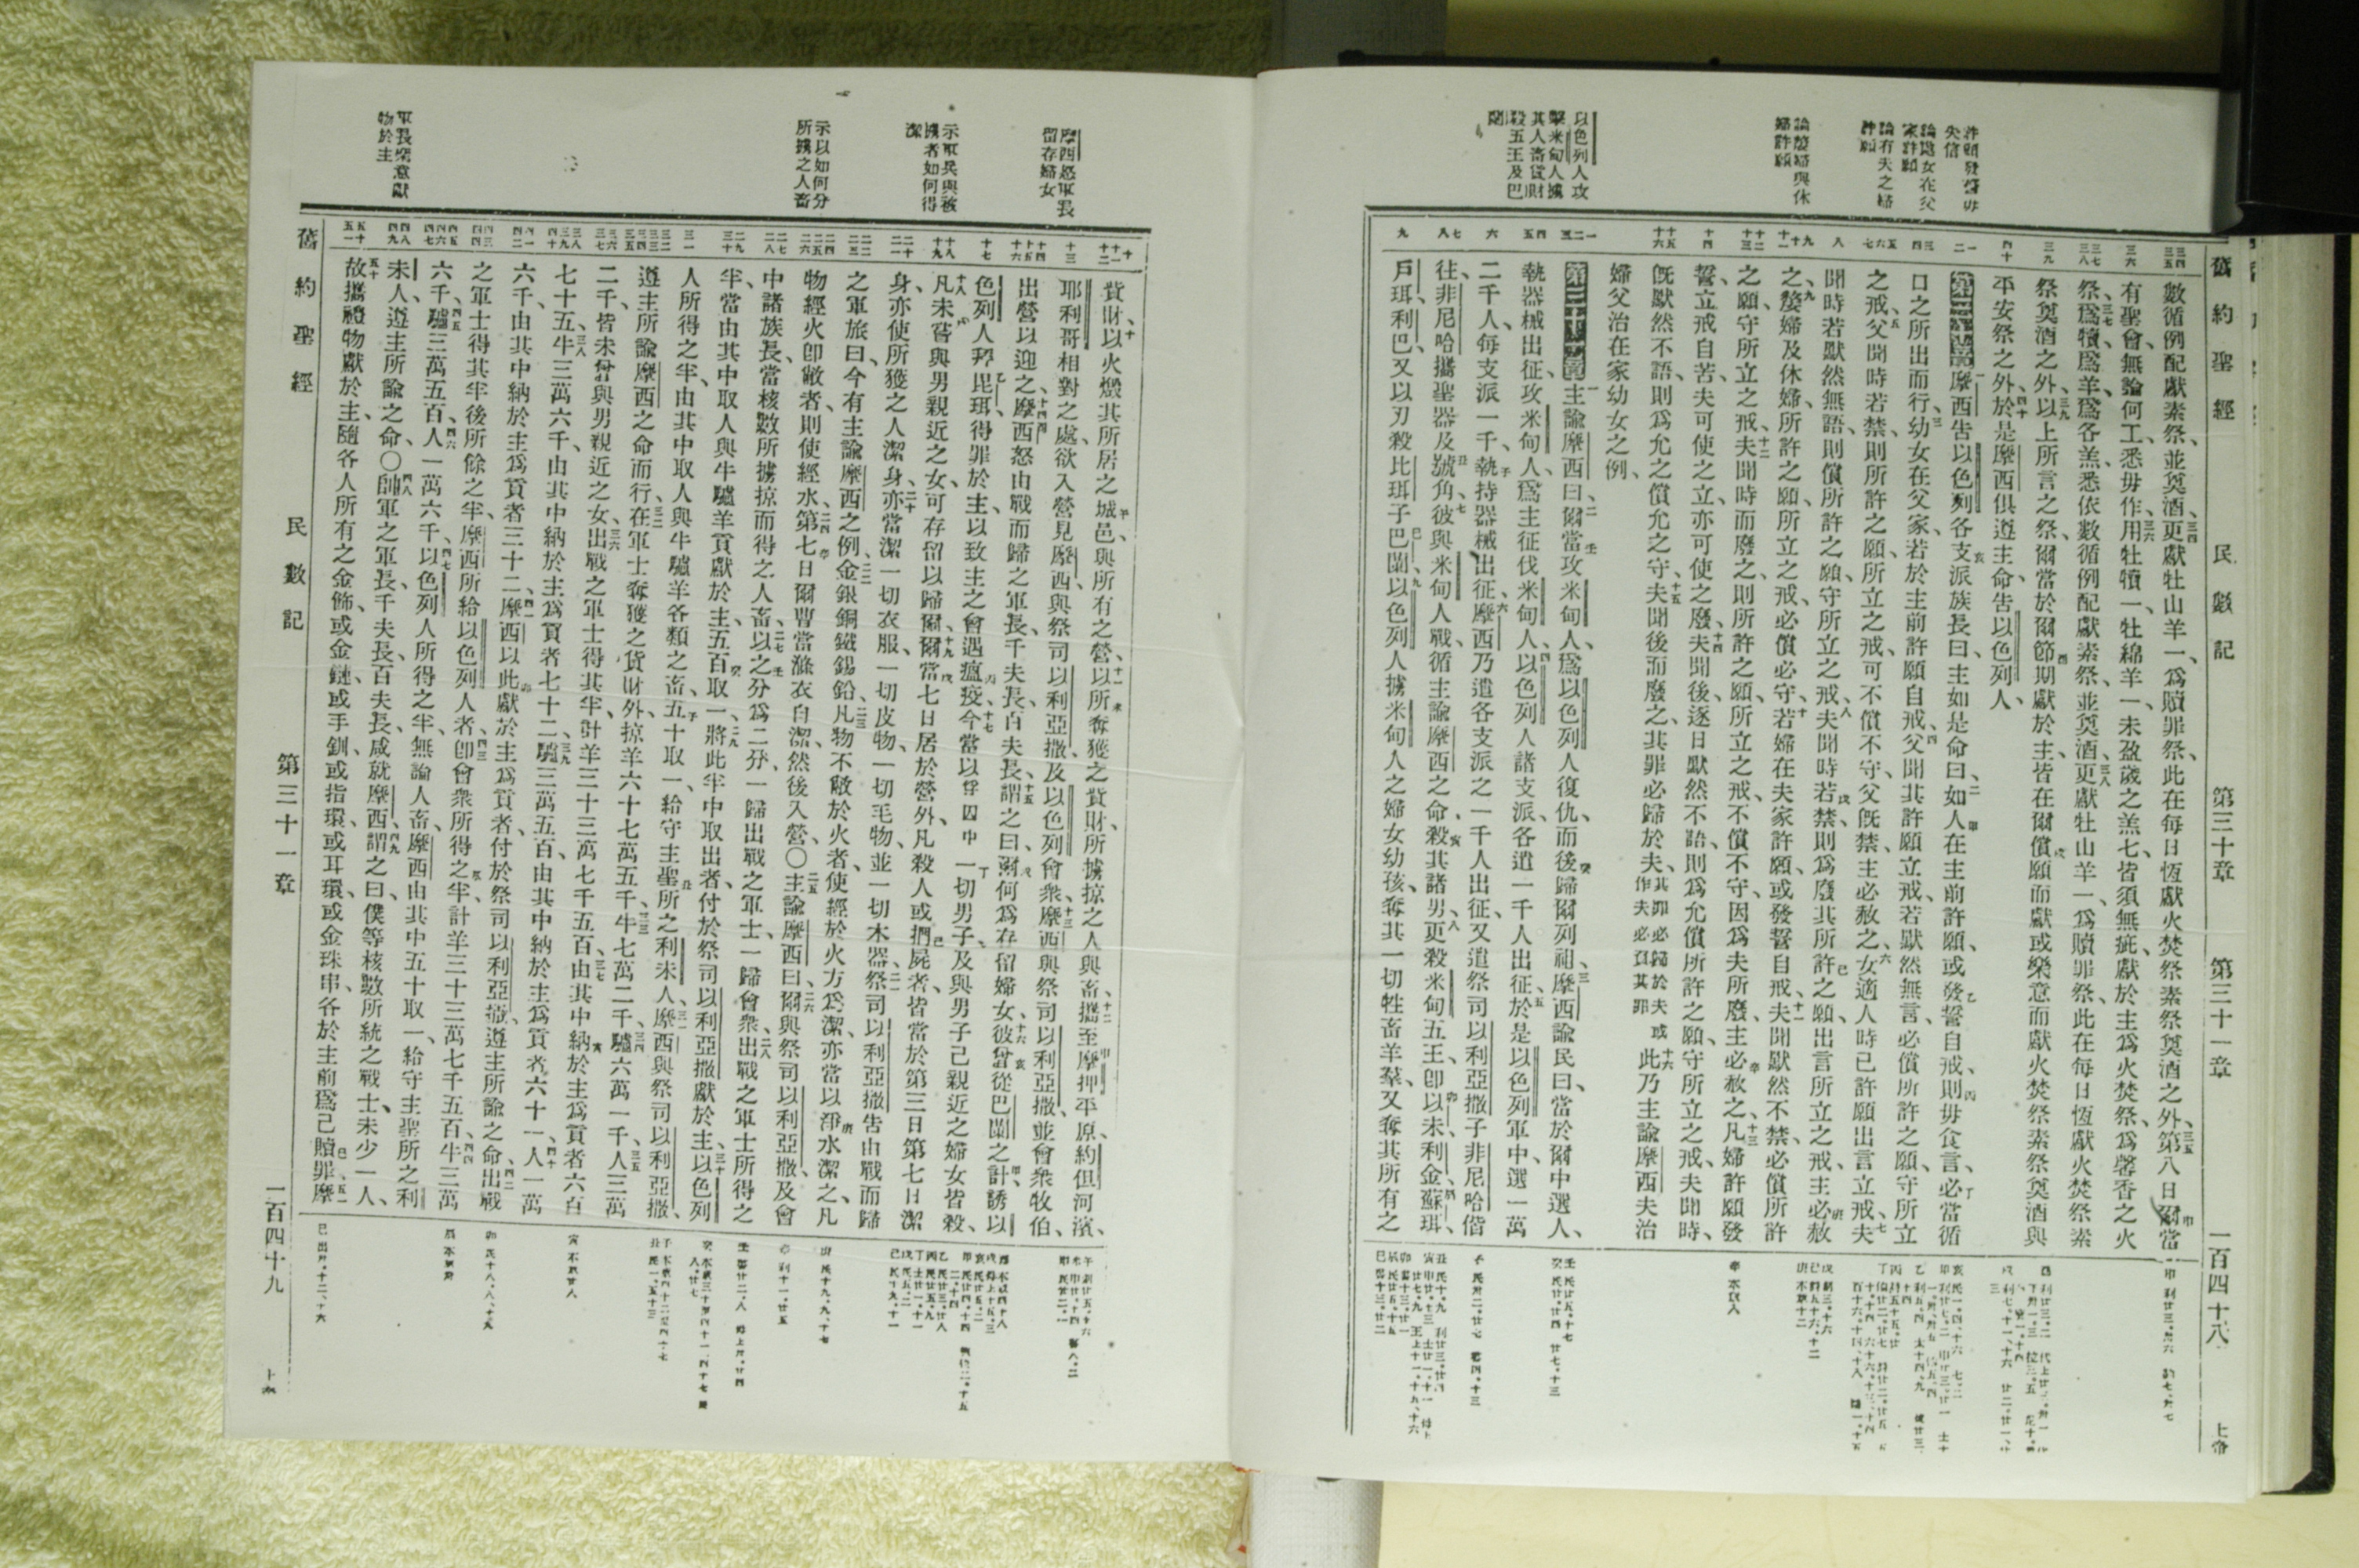 舊約聖經 民數記 第三十章 第三十一章 一百四十八 上帝
許願發誓毋失信
論幼女在父家許願
論有夫之婦許願
論嫠婦與休婦許願
以色列人攻擊米甸人擄其人畜貨財殺五王及巴蘭
數循例配獻素祭、並奠酒、三四更獻牡山羊一、爲贖罪祭、此在每日恆獻火焚祭素祭奠酒之外、三五第八日爾當
有聖會、無論何工、悉毋作、三六用牡犢一、牡綿羊一、未盈歲之羔七、皆須無疵、獻於主爲火焚祭、爲馨香之火
祭、三七爲犢、爲羊、爲各羔、悉依數循例配獻素祭、並奠酒、三八更獻牡山羊一、爲贖罪祭、此在每日恆獻火焚祭素
祭奠酒之外、三九以上所言之祭、爾當於爾節期獻於主、皆在爾償願而獻或樂意而獻火焚祭素祭奠酒與
平安祭之外、四十於是摩西俱遵主命告以色列人、
第三十章一摩西告以色列各支派族長曰、主如是命曰、二如人在主前許願、或發誓自戒、則毋食言、必當循
口之所出而行、三幼女在父家、若於主前許願自戒、四父聞其許願立戒、若默然無言、必償所許之願、守所立
之戒、五父聞時若禁、則所許之願、所立之戒、可不償不守、父既禁、主必赦之、六女適人時已許願出言立戒、七夫
聞時若默然無語、則償所許之願、守所立之戒、八夫聞時若禁、則爲廢其所許之願、出言所立之戒、主必赦
之、九嫠婦及休婦、所許之願、所立之戒、必償必守、十若婦在夫家許願、或發誓自戒、十一夫聞默然不禁、必償所許
之願、守所立之戒、十二夫聞時而廢之、則所許之願、所立之戒、不償不守、因爲夫所廢、主必赦之、十三凡婦許願發
誓、立戒自苦、夫可使之立、亦可使之廢、十四夫聞後、逐日默然不語、則爲允償所許之願、守所立之戒、夫聞時、
既默然不語、則爲允之償允之守、十五夫聞後而廢之、其罪必歸於夫、其罪必歸於夫或作夫必負其罪十六此乃主諭摩西夫治
婦父治在家幼女之例、
第三十一章一主諭摩西曰、二爾當攻米甸人、爲以色列人復仇、而後歸爾列祖、三摩西諭民曰、當於爾中選人、
執器械出征、攻米甸人、爲主征伐米甸人、四以色列人諸支派、各遣一千人出征、五於是以色列軍中、選一萬
二千人、每支派一千、執持器械出征、六摩西乃遣各支派之一千人出征、又遣祭司以利亞撒子非尼哈偕
往、非尼哈攜聖器及號角、七彼與米甸人戰、循主諭摩西之命、殺其諸男、八更殺米甸五王、卽以未、利金、蘇珥、
戶珥、利巴、又以刃殺比珥子巴蘭、九以色列人擄米甸人之婦女幼孩、奪其一切牲畜羊羣、又奪其所有之
舊約聖經 民數記 第三十一章 一百四十九 上帝
摩西怒軍長留存婦女
示軍兵與被擄者如何得潔
示以如何分所擄之人畜
軍長樂意獻物於主
貨財、十以火燬其所居之城邑、與所有之營、十一以所奪獲之貨財、所擄掠之人與畜、十二攜至摩押平原、約但河濱、
耶利哥相對之處、欲入營見摩西與祭司以利亞撒、及以色列會衆、十三摩西與祭司以利亞撒、並會衆牧伯、
出營以迎之、十四摩西怒由戰而歸之軍長、千夫長、百夫長、十五謂之曰、爾何爲存留婦女、十六彼曾從巴蘭之計、誘以
色列人拜毘珥、得罪於主、以致主之會遇瘟疫、十七今當以俘囚中一切男子、及與男子已親近之婦女皆殺、
十八凡未嘗與男親近之女、可存留以歸爾、十九爾當七日居於營外、凡殺人或捫屍者、皆當於第三日第七日潔
身、亦使所獲之人潔身、二十亦當潔一切衣服、一切皮物、一切毛物、並一切木器、二一祭司以利亞撒告由戰而歸
之軍旅曰、今有主諭摩西之例、二二金銀銅鐵錫鉛、二三凡物不敝於火者、使經於火方爲潔、亦當以淨水潔之、凡
物經火卽敝者、則使經水、二四第七日爾曹當滌衣自潔、然後入營、〇二五主諭摩西曰、二六爾與祭司以利亞撒、及會
中諸族長、當核數所擄掠而得之人畜、二七以之分爲二分、一歸出戰之軍士、一歸會衆、二八出戰之軍士所得之
半、當由其中取人與牛驢羊貢獻於主、五百取一、二九將此半中取出者、付於祭司以利亞撒獻於主、三十以色列
人所得之半、由其中取人與牛驢羊各類之畜、五十取一、給守主聖所之利未人、三一摩西與祭司以利亞撒、
遵主所諭摩西之命而行、三二在軍士奪獲之貨財外、掠羊六十七萬五千、三三牛七萬二千、三四驢六萬一千、三五人三萬
二千、皆未曾與男親近之女、三六出戰之軍士得其半、計羊三十三萬七千五百、三七由其中納於主爲貢者六百
七十五、三八牛三萬六千、由其中納於主爲貢者七十二、三九驢三萬五百、由其中納於主爲貢者六十一、四十人一萬
六千、由其中納於主爲貢者三十二、四一摩西以此獻於主爲貢者、付於祭司以利亞撒、遵主所諭之命、四二出戰
之軍士得其半後所餘之半、摩西所給以色列人者、四三卽會衆所得之半、計羊三十三萬七千五百、四四牛三萬
六千、四五驢三萬五百、四六人一萬六千、四七以色列人所得之半、無論人畜、摩西由其中五十取一、給守主聖所之利
未人、遵主所諭之命、〇四八帥軍之軍長、千夫長、百夫長、咸就摩西、四九謂之曰、僕等核數所統之戰士、未少一人、
五十故攜禮物獻於主、隨各人所有之金飾、或金鏈、或手釧、或指環、或耳環、或金珠串、各於主前爲己贖罪、五一摩